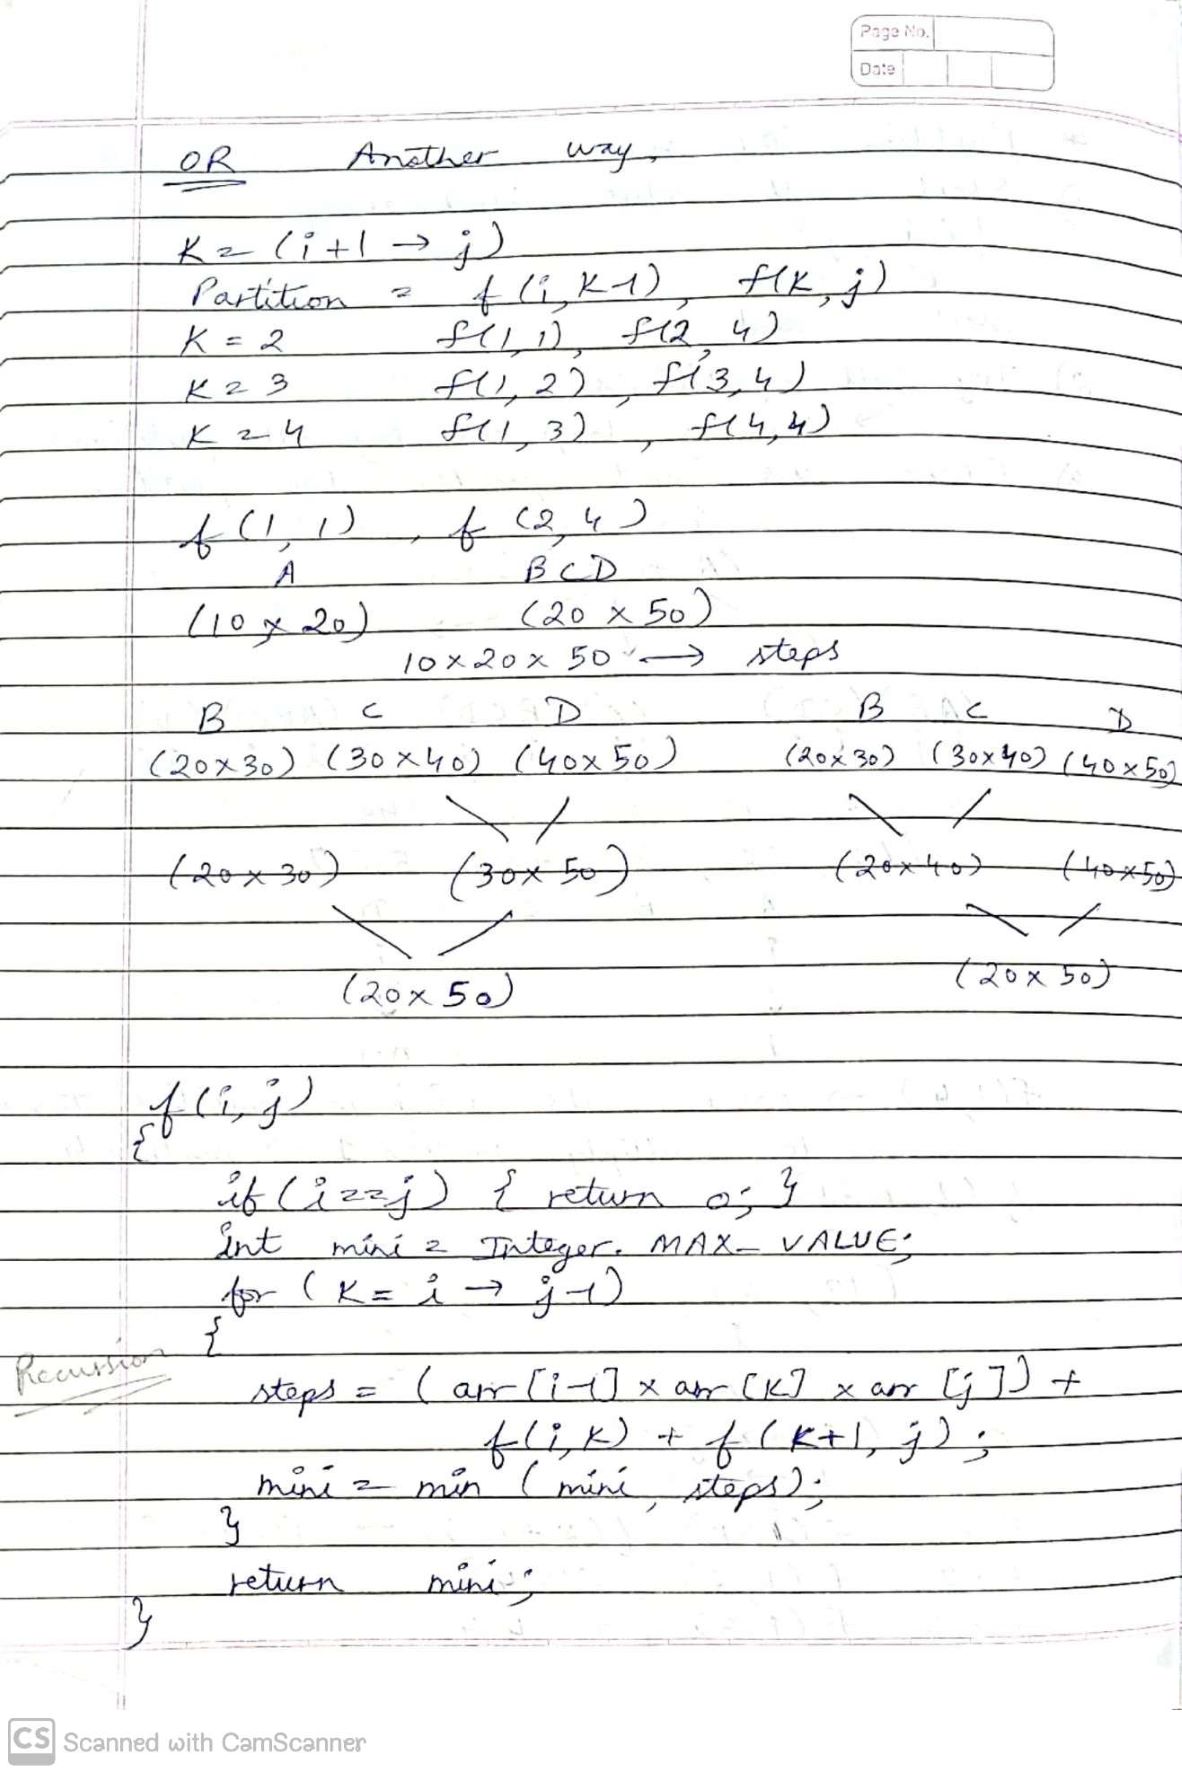 Page No.
Date
OR Another way,
K = (i+1 → j)
Partition = f(i, K-1), f(K, j)
K = 2 f(1,1), f(2,4)
K = 3 f(1,2), f(3,4)
K = 4 f(1,3), f(4,4)
f(1,1), f(2,4)
A BCD
(10 x 20) (20 x 50)
10 x 20 x 50 → steps
B C D B C D
(20x30) (30x40) (40x50) (20x30) (30x40) (40x50)
(20x30) (30x50) (20x40) (40x50)
(20x50) (20x50)
f(i, j)
{
if (i==j) { return 0; }
int mini = Integer. MAX_VALUE;
for (K = i → j-1)
{
Recursion
steps = (arr[i-1] x arr[K] x arr[j]) +
f(i, K) + f(K+1, j);
mini = min (mini, steps);
}
return mini;
}
CS Scanned with CamScanner